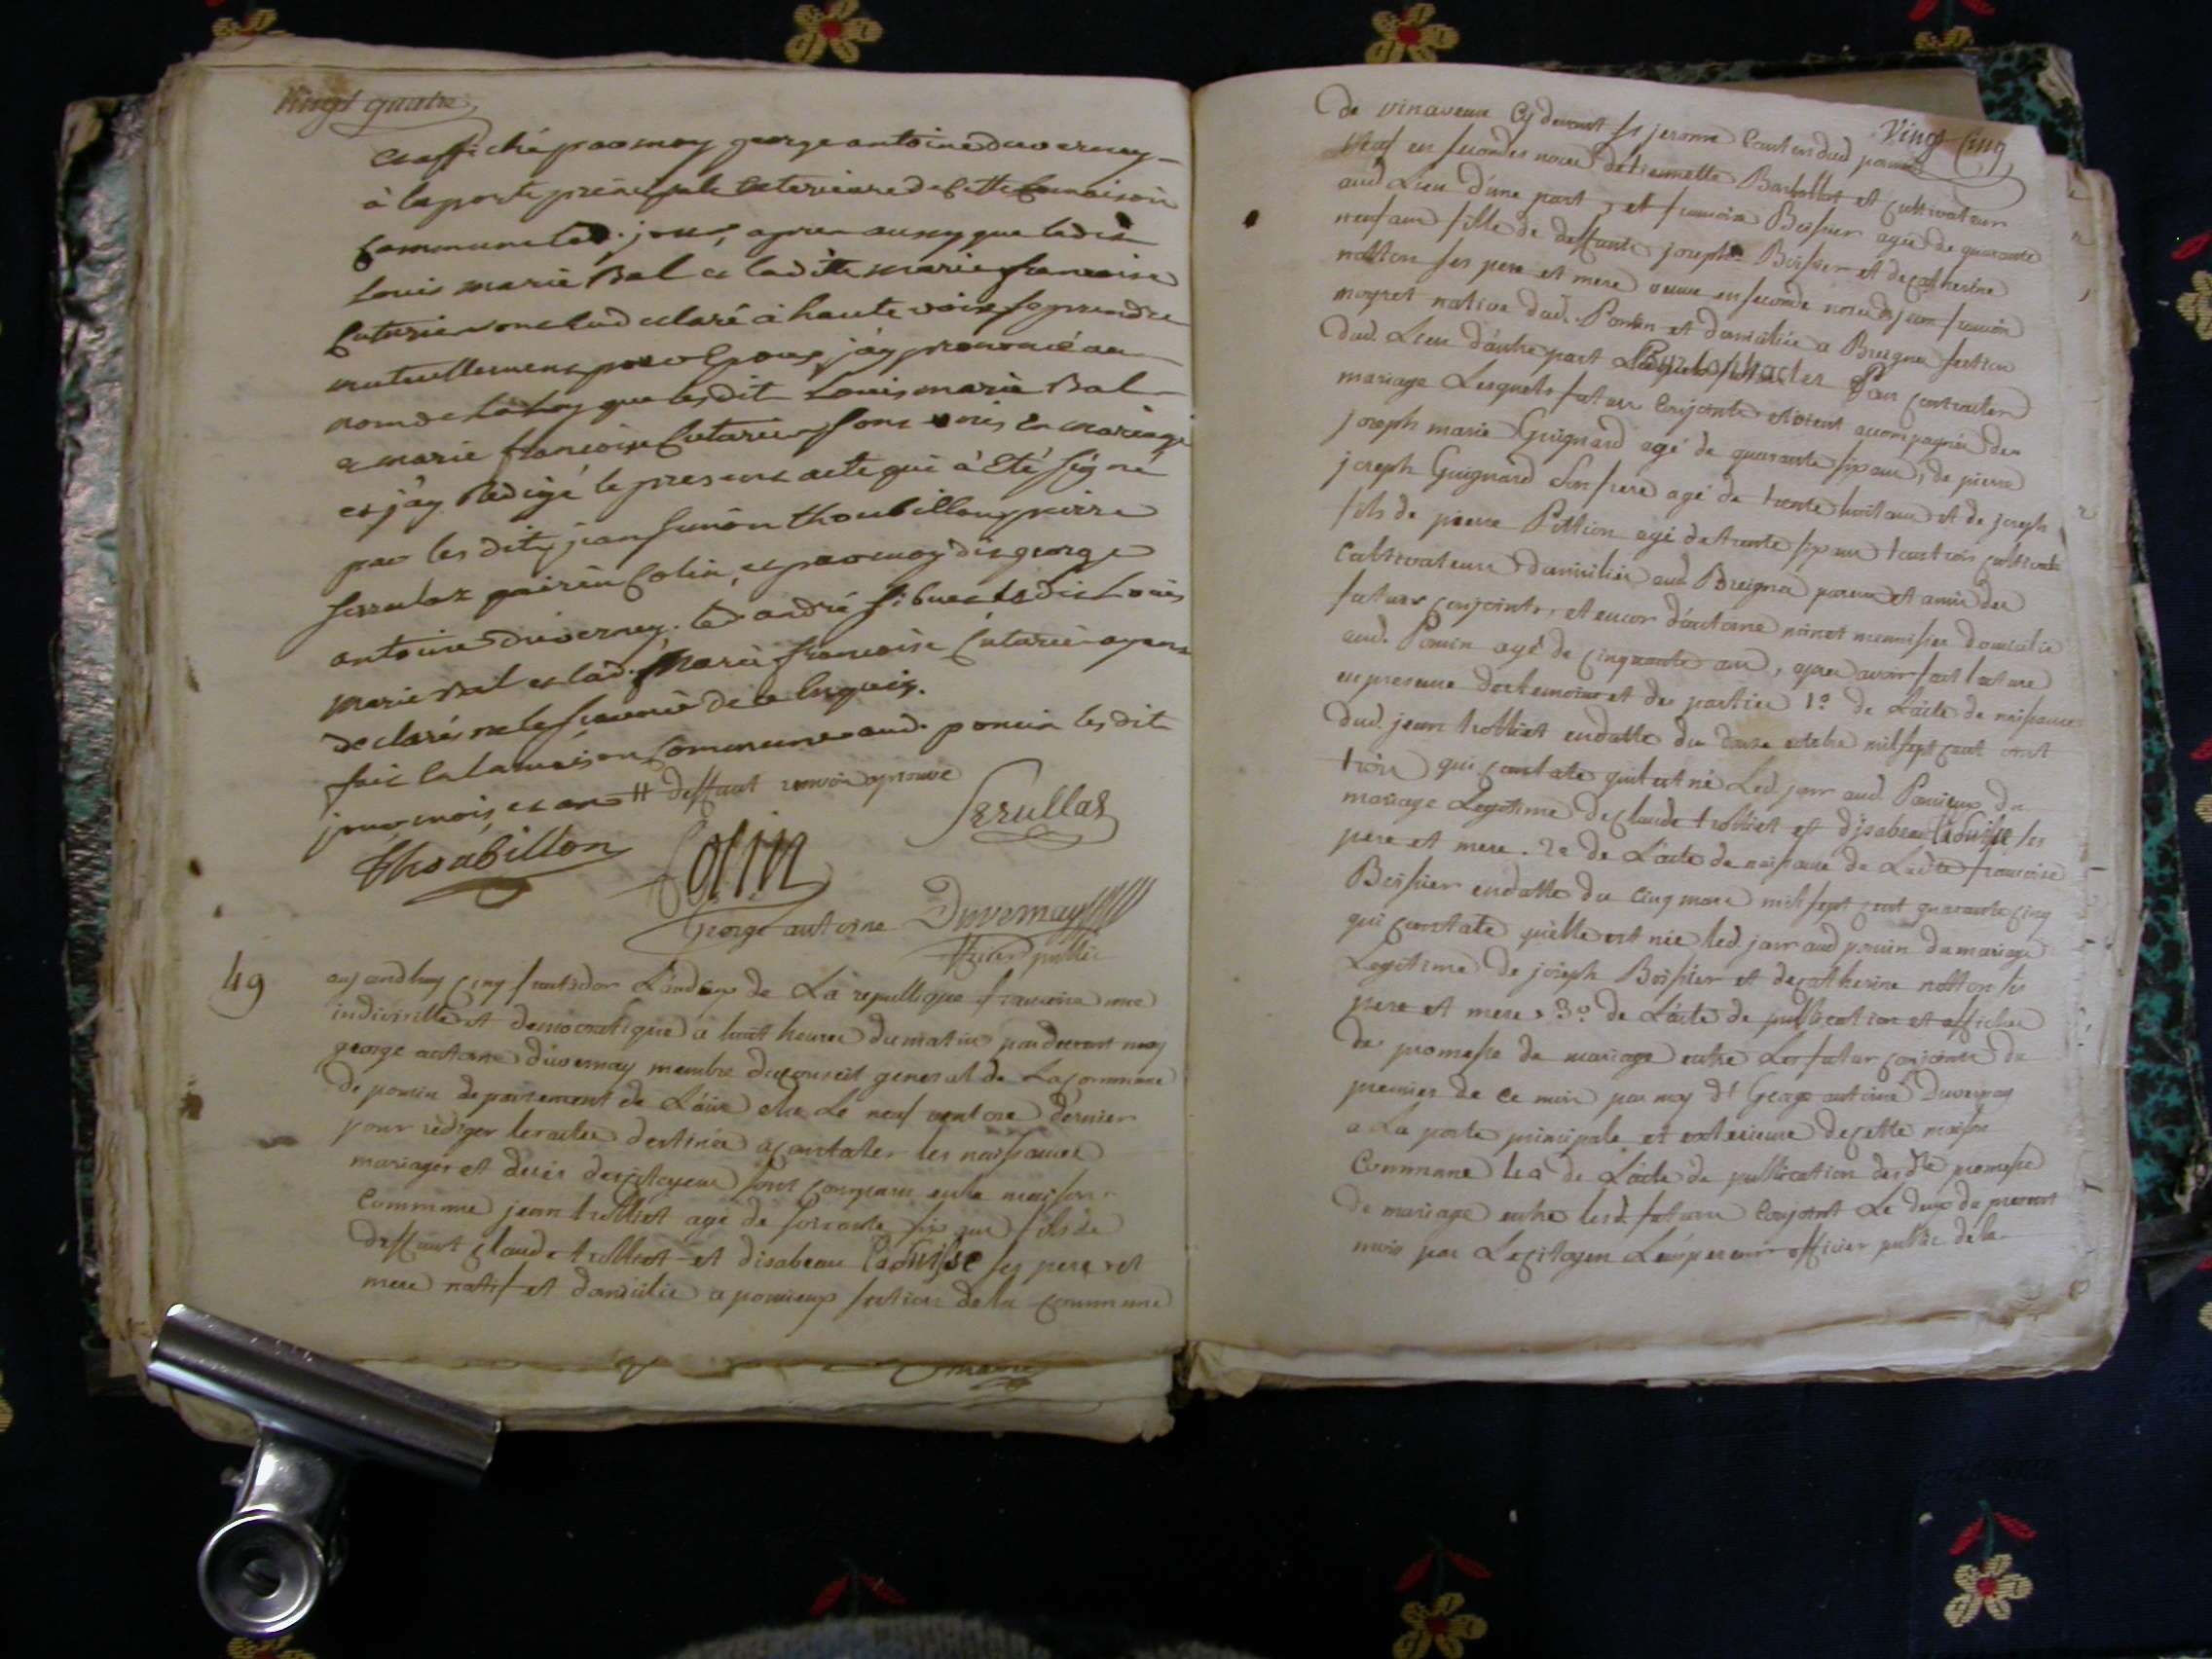 Vingt quatre
et affiché par moy george antoine duverney
à la porte principale exterieure de cette maison
commune led. jour, apres aussy que ledit
Louis marie Bal et ladite marie francoise
Cuturier ont eu declaré à haute voix se prendre
mutuellement pour Epoux, j'ay prononcé au
nom de la Loy que lesdit Louis marie Bal
et marie francoise Cuturier sont unis En mariage
et j'ay Redigé le present acte qui à Eté signé
par les dits jean simon thoubillon, pierre
serrulaz Colin, et par moy dit george
antoine duverney, led andré sibuet led Louis
marie Bal et lad. Marie francoise Cuturier ayant
declarés ne le scavoir de ce Enquis.
fait En la maison Commune aud. poncin lesdit
jour mois, et an # deffunt renvoi aprouvé
Thoubillon Colin Serullas
George antoine Duvernay
officier public
49
aujourdhuy cinq fructidor L'an deux de La republique francoise une
indivisible et democratique à huit heures du matin pardevant moy
george antoine duvernay membre du conseil general de La commune
de poncin departement de L'ain elu Le neuf ventose dernier
pour rediger les actes destinés a constater les naissances
mariages et deces des citoyens sont comparus en la maison
Commune jean trolliet agé de soixante six ans fils de
deffunt claude trolliet et disabeau Laduisse ses pere et
mere natif et domicilié a poncieux section de la commune
Vingt Cinq
de vinaveux Cy devant st jerome Canton dud poncin
Veuf en secondes noces detiennette Barbollat et cultivateur
aud Lieu d'une part, et francoise Boissier agée de quarante
neuf ans fille de deffunts joseph Boissier et de catherine
notton ses pere et mere veuve en seconde noces de jean francois
moyret native dud. Poncin et domiciliée a Breigna section
dud. Lieu d'autre part Pour contracter
mariage Lesquels futurs Conjoints etoient accompagnés de
joseph marie Guignard agé de quarante six ans, de pierre
joseph Guignard son frere agé de trente huit ans et de joseph
fils de pierre Pittion agé de trente six ans tous trois
Cultivateurs domiciliés aud Breigna parens et amis des
futurs conjoints, et encor d'antoine ninet menuisier domicilié
aud. Poncin agé de cinquante ans, apres avoir fait lecture
en presence des temoins et des parties 1º de L'acte de naissance
dud. jean trolliet en datte du octobre mil sept cent vint
trois qui constate qu'il est né Led. jour aud. Poncieux du
mariage Legitime de claude trolliet et disabeau Laduisse ses
pere et mere. 2º de L'acte de naissance de Ladite francoise
Boissier en datte du cinq mars mil sept cent quarante cinq
qui constate qu'elle est née led. jour aud poncin du mariage
Legitime de joseph Boissier et de catherine notton ses
pere et mere, 3º de L'acte de publication et affiches
de promesse de mariage entre Les futur conjoints du
premier de ce mois par moy dt George antoine Duvernay
a La porte principale et exterieure de cette maison
Commune de L'acte de publication desdte promesse
de mariage entre lesd. futurs Conjoint Le deux du present
mois par Le citoyen Lempereur officier public de la